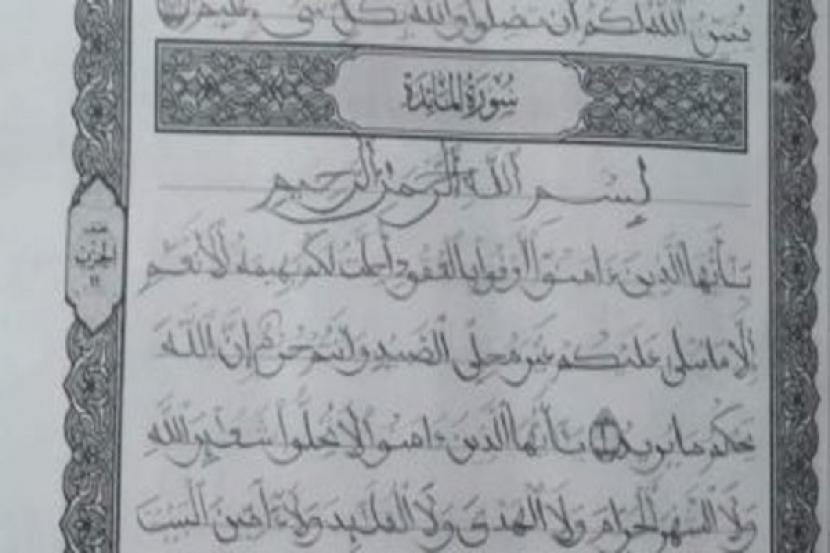 يبين الله لكم أن تضلوا والله بكل شيء عليم
سورة المائدة
بسم الله الرحمن الرحيم
يأيها الذين ءامنوا أوفوا بالعقود أحلت لكم بهيمة الأنعم
إلا ما يتلى عليكم غير محلي الصيد وأنتم حرم إن الله
يحكم ما يريد ١ يأيها الذين ءامنوا لا تحلوا شعئر الله
ولا الشهر الحرام ولا الهدى ولا القلئد ولا ءامين البيت
الحزب
١١